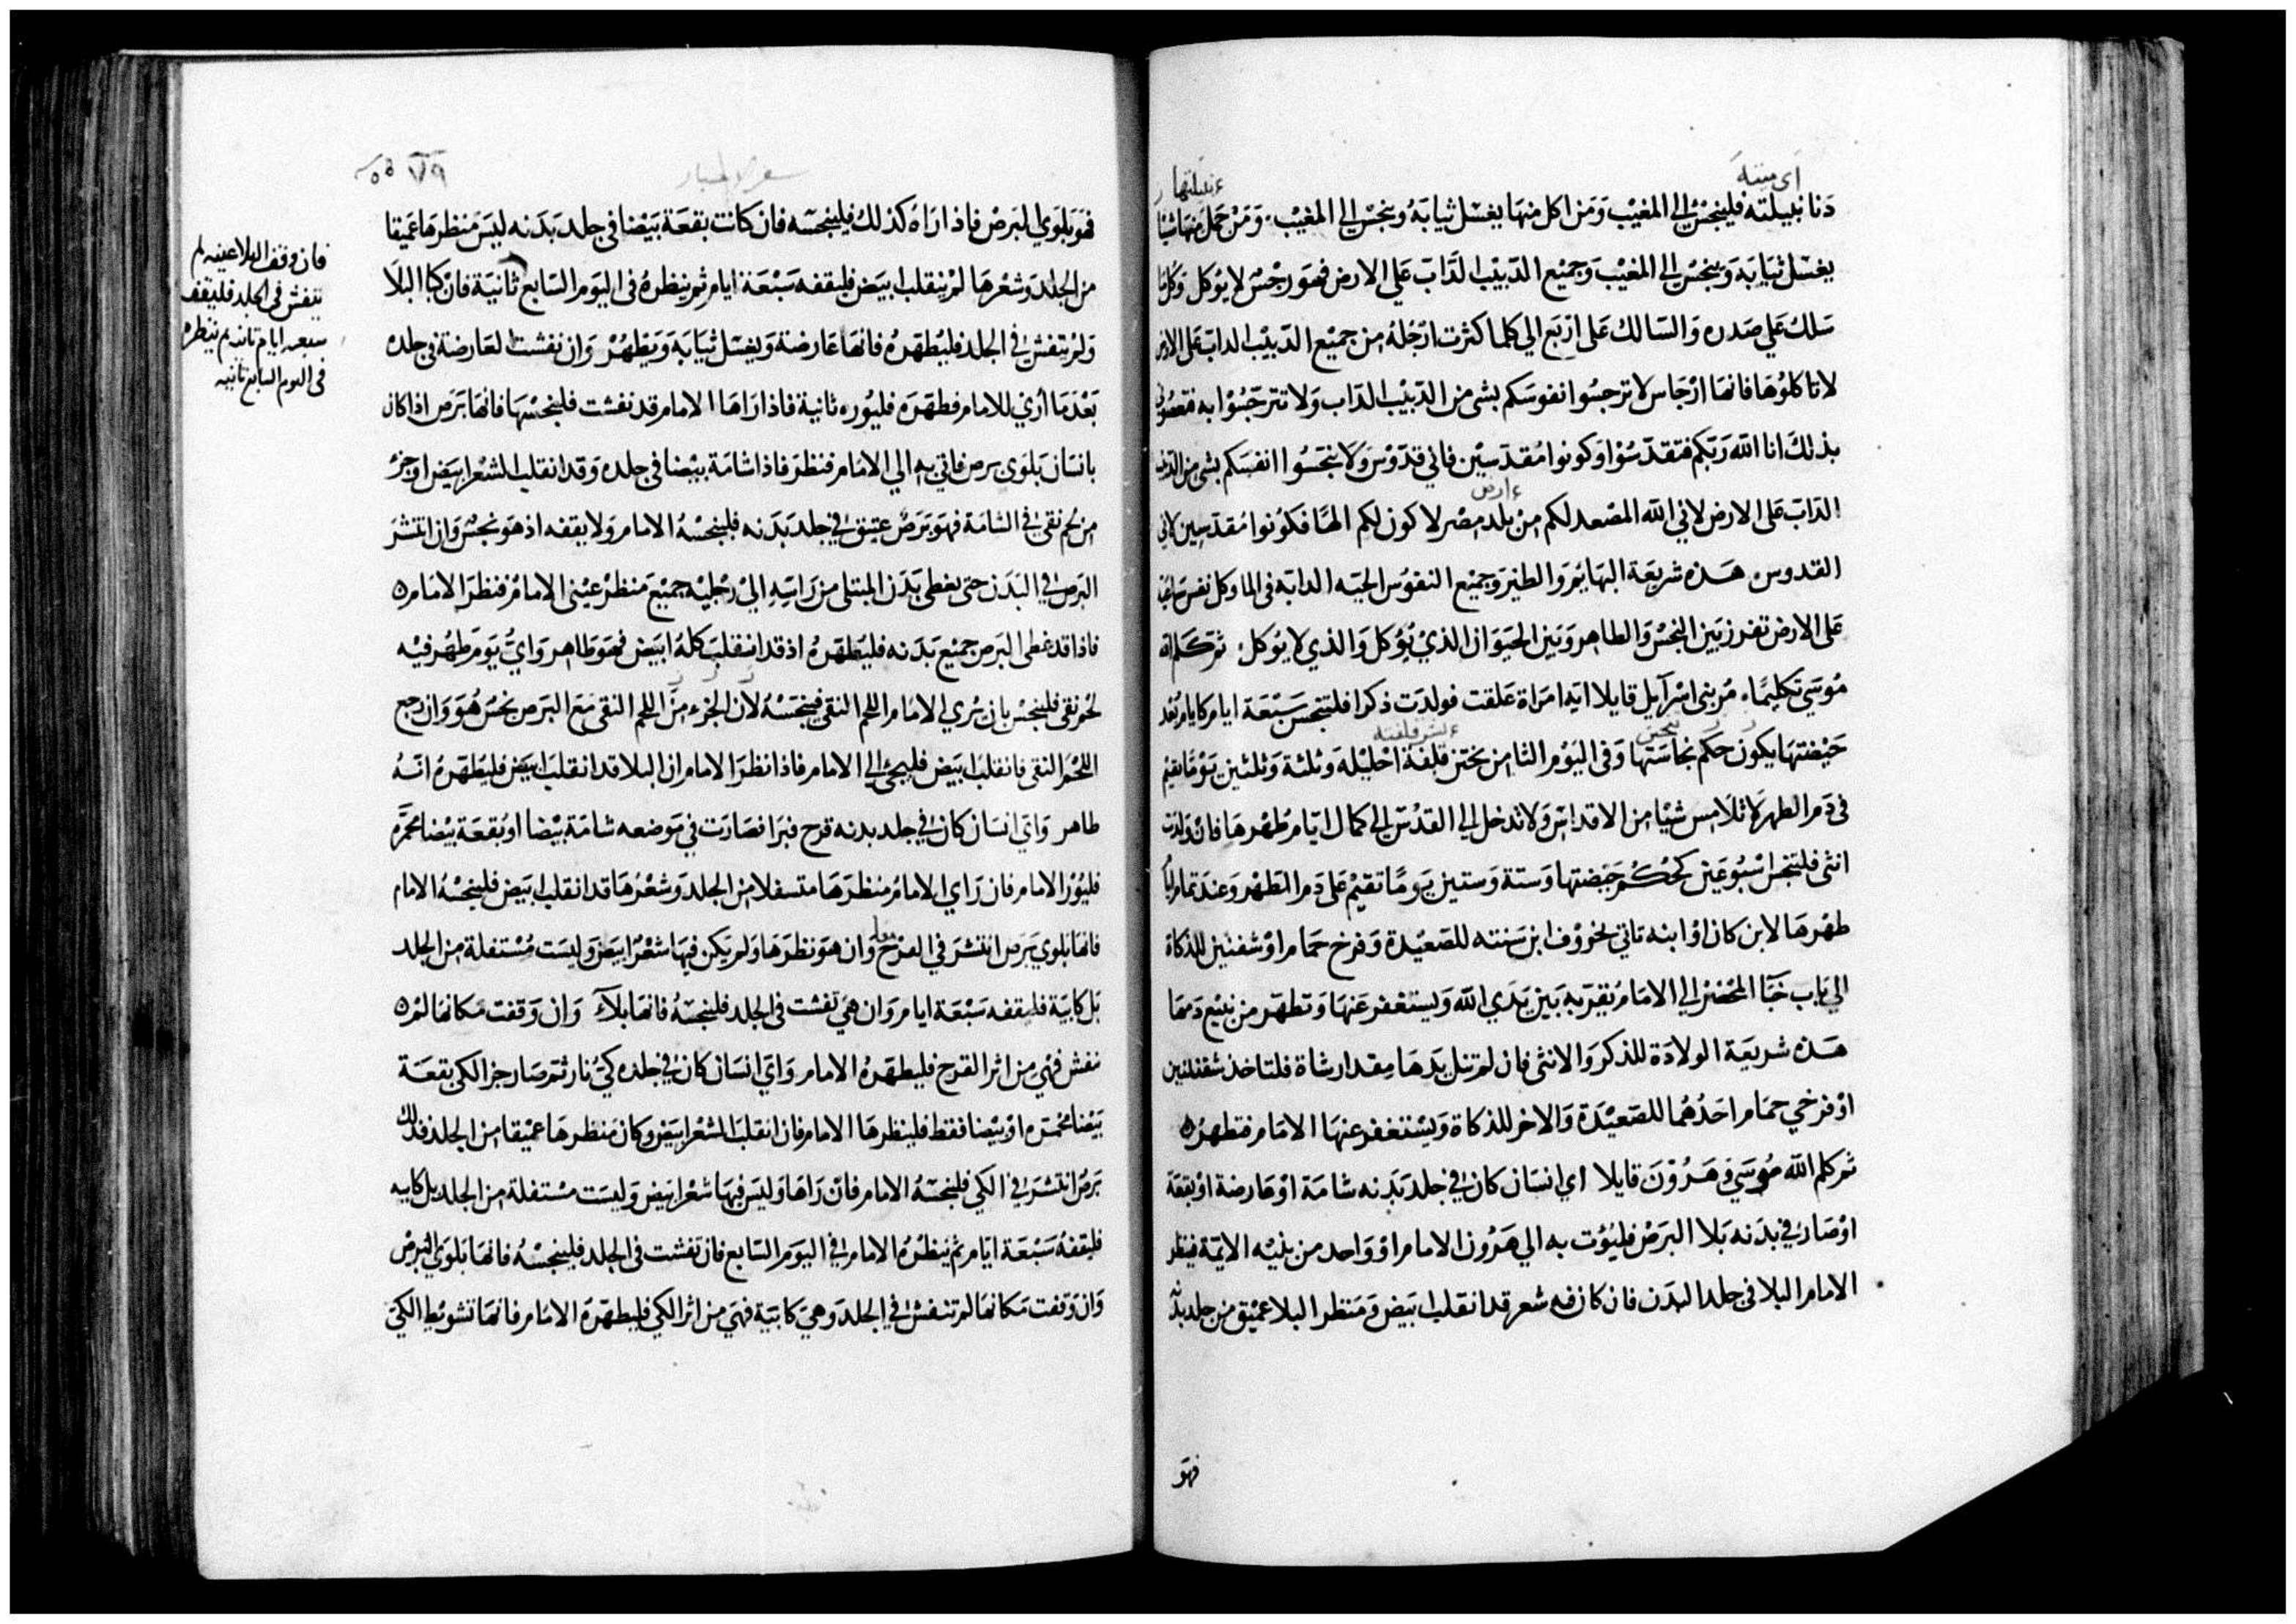 اى ميتته
ءنبيلتها
دنا نبيلته فلينجس الى المغيب ومن اكل منها يغسل ثيابه وينجس الى المغيب ومن حمل منها شيئا
يغسل ثيابه وينجس الى المغيب وجميع الدبيب الداب على الارض فهو رجس لا يوكل وكلما
سلك على صدره والسالك على اربع الى كلما كثرت ارجله من جميع الدبيب الداب على الارض
لا تاكلوها فانها ارجاس لا ترجسوا نفوسكم بشى من الدبيب الداب ولا تترجسوا به
بذلك انا الله ربكم فتقدسوا وكونوا مقدسين فانى قدوس ولا تنجسوا انفسكم بشى من
ءارض
الداب على الارض لانى الله المصعد لكم من بلد مصر لاكون لكم الها فكونوا مقدسين لانى
القدوس هذه شريعة البهايم والطير وجميع النفوس الحيه الدابه فى الما وكل نفس
على الارض تفرز بين النجس والطاهر وبين الحيوان الذي يوكل والذي لا يوكل ثم كلم الله
موسي تكليما مر بنى اسرآيل قايلا ايه امراة علقت فولدت ذكرا فلتنجس سبعة ايام كايام
تنجس
حيضتها يكون حكم نجاستها وفى اليوم الثامن يختن قلفة احليله وثلثة وثلثين يوما تقيم
فى دم الطهر لا تلامس شيا من الاقداس ولا تدخل الى القدس الى كمال ايام طهرها فان ولدت
انثى فلتنجس اسبوعين كحكم حيضتها وستة وستين يوما تقيم على دم الطهر وعند تمام ايام
طهرها لابن كان او ابنه تاتى بخروف ابن سنته للصعيدة وفرخ حمام او شفنين للذكاة
الى باب خبا المحضر الى الامام يقربه بين يدي الله ويستغفر عنها وتطهر من نبيع دمها
هذه شريعة الولادة للذكر والانثى فان لم تنل يدها مقدار شاة فلتاخذ شفنينين
او فرخي حمام احدهما للصعيدة والاخر للذكاة ويستغفر عنها الامام فتطهر
ثم كلم الله موسي وهرون قايلا اي انسان كان في جلد بدنه شامة او عارضة او بقعة
او صار في بدنه بلا البرص فليؤت به الى هرون الامام او واحد من بنيه الايمة فينظر
الامام البلا فى جلد البدن فان كان فيه شعر قد انقلب ابيض ومنظر البلا عميق من جلد بدنه
فهو
٧٩
سفر الاحبار
فهو بلوي البرص فاذا اراه كذلك فلينجسه فان كانت بقعة بيضا فى جلد بدنه ليس منظرها عميقا
من الجلد وشعرها لم ينقلب ابيض فليقفه سبعة ايام ثم ينظره فى اليوم السابع ثانية فان كبا البلا
ولم يتفش في الجلد فليطهره فانها عارضة ويغسل ثيابه ويطهر وان نفشت العارضة فى جلده
بعد ما اري للامام فطهره فليوره ثانية فاذا راها الامام قد نفشت فلينجسها فانها برص اذا كان
بانسان بلوى برص فاتي به الي الامام فنظر فاذا شامة بيضا فى جلده وقد انقلب الشعر ابيض او جز
من لحم نقي في الشامة فهو برص عتيق في جلد بدنه فلينجسه الامام ولا يقفه اذ هو نجس وان انتشر
البرص في البدن حتى يغطى بدن المبتلى من راسه الي رجليه جميع منظر عيني الامام فنظر الامام
فاذا قد غطى البرص جميع بدنه فليطهره اذ قد انقلب كله ابيض فهو طاهر واي يوم ظهر فيه
لحم نقى فلينجس بان يري الامام اللحم النقي فينجسه لان الجزء من اللحم النقى مع البرص نجس هو وان رجع
اللحم النقى فانقلب ابيض فليجئ الى الامام فاذا نظر الامام ان البلا قد انقلب ابيض فليطهره انه
طاهر واي انسان كان في جلد بدنه قرح فبرا فصارت في موضعه شامة بيضا او بقعة بيضا محمرة
فليور الامام فان راي الامام منظرها متسفلا من الجلد وشعرها قد انقلب ابيض فلينجسه الامام
فانها بلوي برص انتشر في القرح وان هو نظرها ولم يكن فيها شعر ابيض وليست مستفلة من الجلد
بل كابية فليقفه سبعة ايام وان هي تفشت فى الجلد فلينجسه فانها بلآ وان وقفت مكانها لم
تفش فهي من اثر القرح فليطهره الامام واي انسان كان في جلده كي نار ثم صار جز الكى بقعة
بيضا محمره او بيضا فقط فلينظرها الامام فان انقلب الشعر ابيض وكان منظرها عميقا من الجلد فذلك
برص انتشر في الكي فلينجسه الامام فان راها وليس فيها شعر ابيض وليست مستفلة من الجلد بل كابيه
فليقفه سبعة ايام ثم ينظره الامام في اليوم السابع فان تفشت فى الجلد فلينجسه فانها بلوي البرص
وان وقفت مكانها لم تنفش في الجلد وهي كابية فهي من اثر الكي فليطهره الامام فانها تشويط الكي
فان وقف البلا عينه لم
يتفش فى الجلد فليقف
سبعه ايام ثانيه ثم ينظره
فى اليوم السابع ثانيه